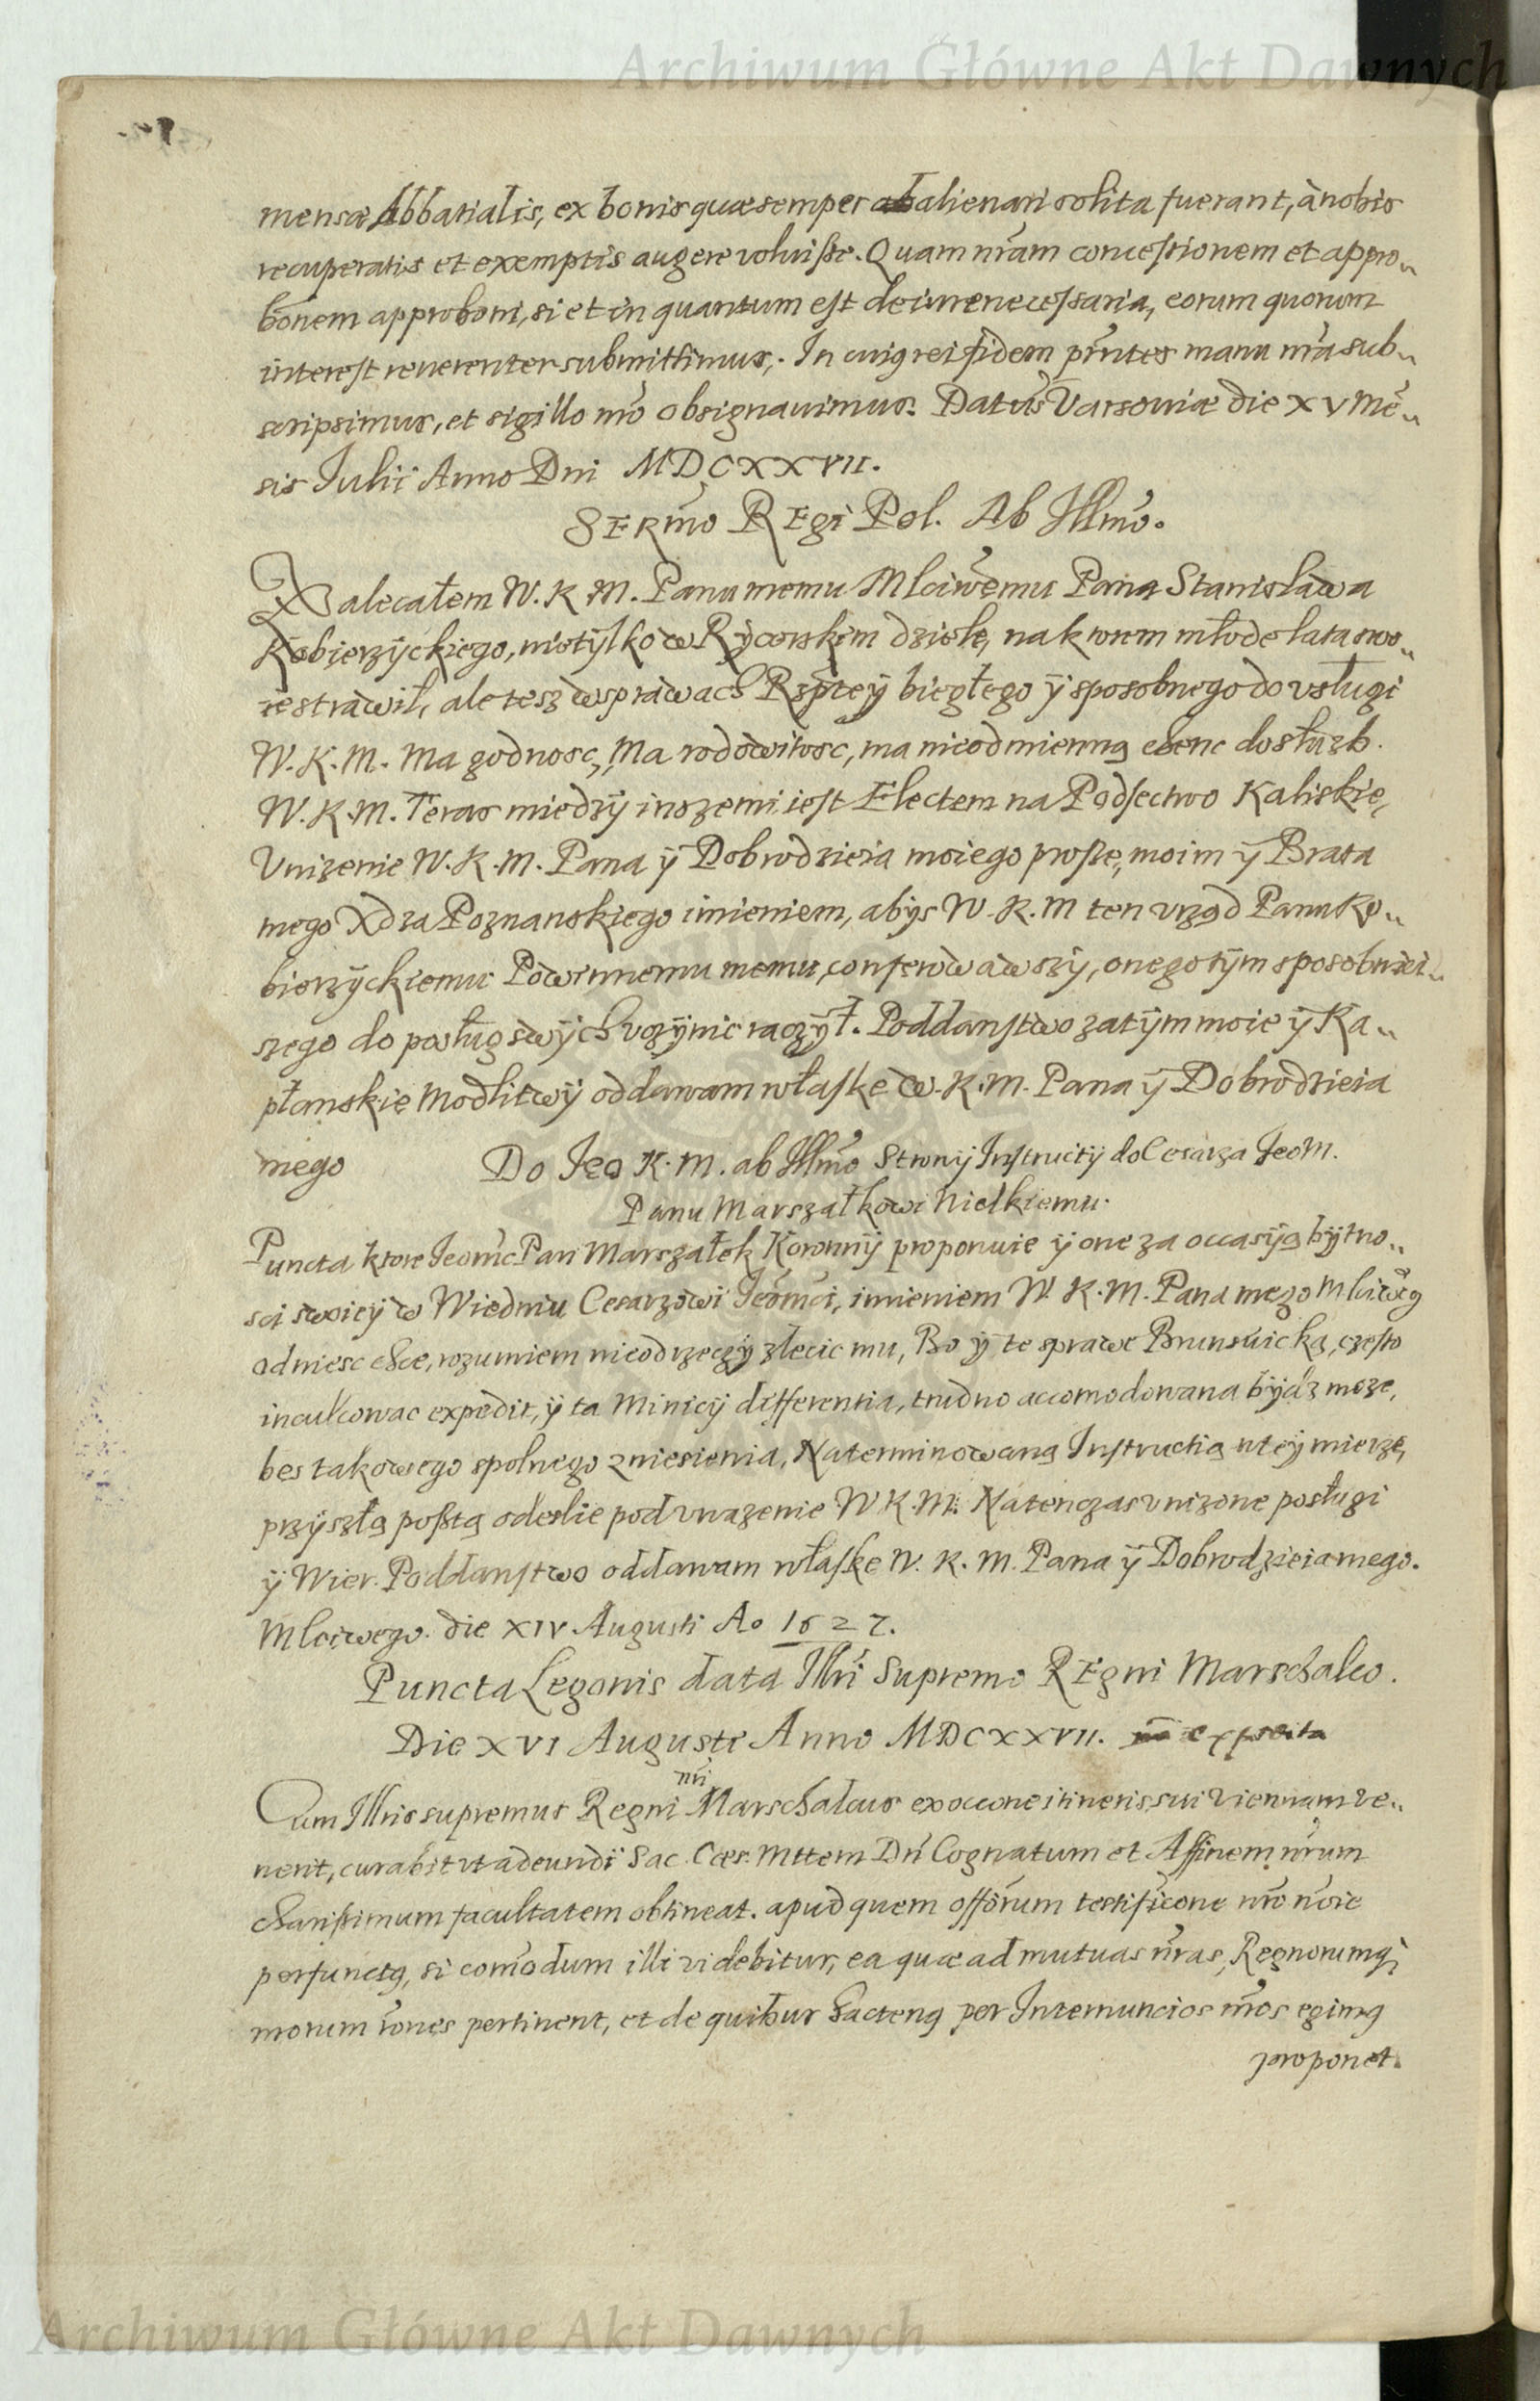 Archiwum Główne Akt Dawnych
mensæ Abbatialis, ex bonis quæ semper abalienari solita fuerant, à nobis
recuperatis et exemptis augere voluisse. Quam nrãm concessionem et appro„
bõnem approboni, si et in quantum est de iure necessaria, eorum quorum
interest reuerenter submittimus. In cuiq rei fidem prñtes manu nrã sub„
scripsimus, et sigillo nrõ obsignauimus. Datũs Varsouiæ die XV Mẽ„
sis Iulii Anno Dni MDCXXVII.
Sermõ Regi Pol. Ab Illmõ.
Zalecałem W. K M. Panu memu Mlciwẽmu Pana Stanisława
Kobierzÿckiego, nietÿlko w Rÿcerskim dziele, na ktorem młode lata swo„
ie strawił, ale tesz w sprawach Rzpteÿ biegłego ÿ sposobnego do vsługi
W. K. M. Ma godnosc, Ma rodowitosc, ma nieodmienną chenc do służb.
W. K. M. Teras miedzÿ inszemi iest Electem na Podsectwo Kaliskie,
Vnizenie W. K. M. Pana ÿ Dobrodzieia moiego prosze, moim ÿ Brata
mego Xdza Poznanskiego imieniem, abÿs W. K. M ten vrząd Panu Ko„
bierzÿckiemu Powinnemu memu, conferowawszÿ, onego tÿm sposobniei„
szego do posług swÿch vczÿnic raczÿł. Poddanstwo zatÿm moie ÿ Ka„
płanskie Modlitwÿ oddawam w łaske W. K. M. Pana ÿ Dobrodzieia
mego
Do Jeo K. M. ab Illmõ Stronÿ Instructiÿ do Cesarza JeoM.
Panu Marszałkowi Wielkiemu.
Puncta ktore Jeomc Pan Marszałek Koronnÿ proponuie ÿ one za occasÿą bÿtno„
sci swoieÿ w Wiedniu Cesarzowi Jeõmci, imieniem W. K. M. Pana mego Mlciwęg
odniesc chce, rozumiem nieodrzeczÿ zlecic mu, Bo ÿ te sprawe Brunswicką, często
inculcowac expedit, ÿ ta Minicÿ differentia, trudno accomodowana bÿdz moze,
bes takowego spolnego zniesienia, Naterminowaną Instructią w teÿ mierze,
przÿszłą posztą odeslie pod vwazenie W K. M. Natenczas vnizone posługi
ÿ Wier. Poddanstwo oddawam w łaske W. K. M. Pana ÿ Dobrodzieia mego.
Mlciwego. die XIV Augusti Ao 1627.
Puncta Legonis data Illri Supremo Regni Marschalco.
Die XVI Augusti Anno MDCXXVII.
nri
Cum Illris supremus Regni Marschalcus ex occone itineris sui Viennam ve„
nerit, curabit vt adeundi Sac. Cæs. Mttem Dñ Cognatum et Affinem nrum
charissimum facultatem obtineat. apud quem offõrum testificone nrõ nõie
perfunctq, si comõdum illi videbitur, ea quæ ad mutuas nrãs, Regnorumq
nrorum rones pertinent, et de quibus hactenq per Internuncios nrõs egimq
proponet.
Archiwum Główne Akt Dawnych